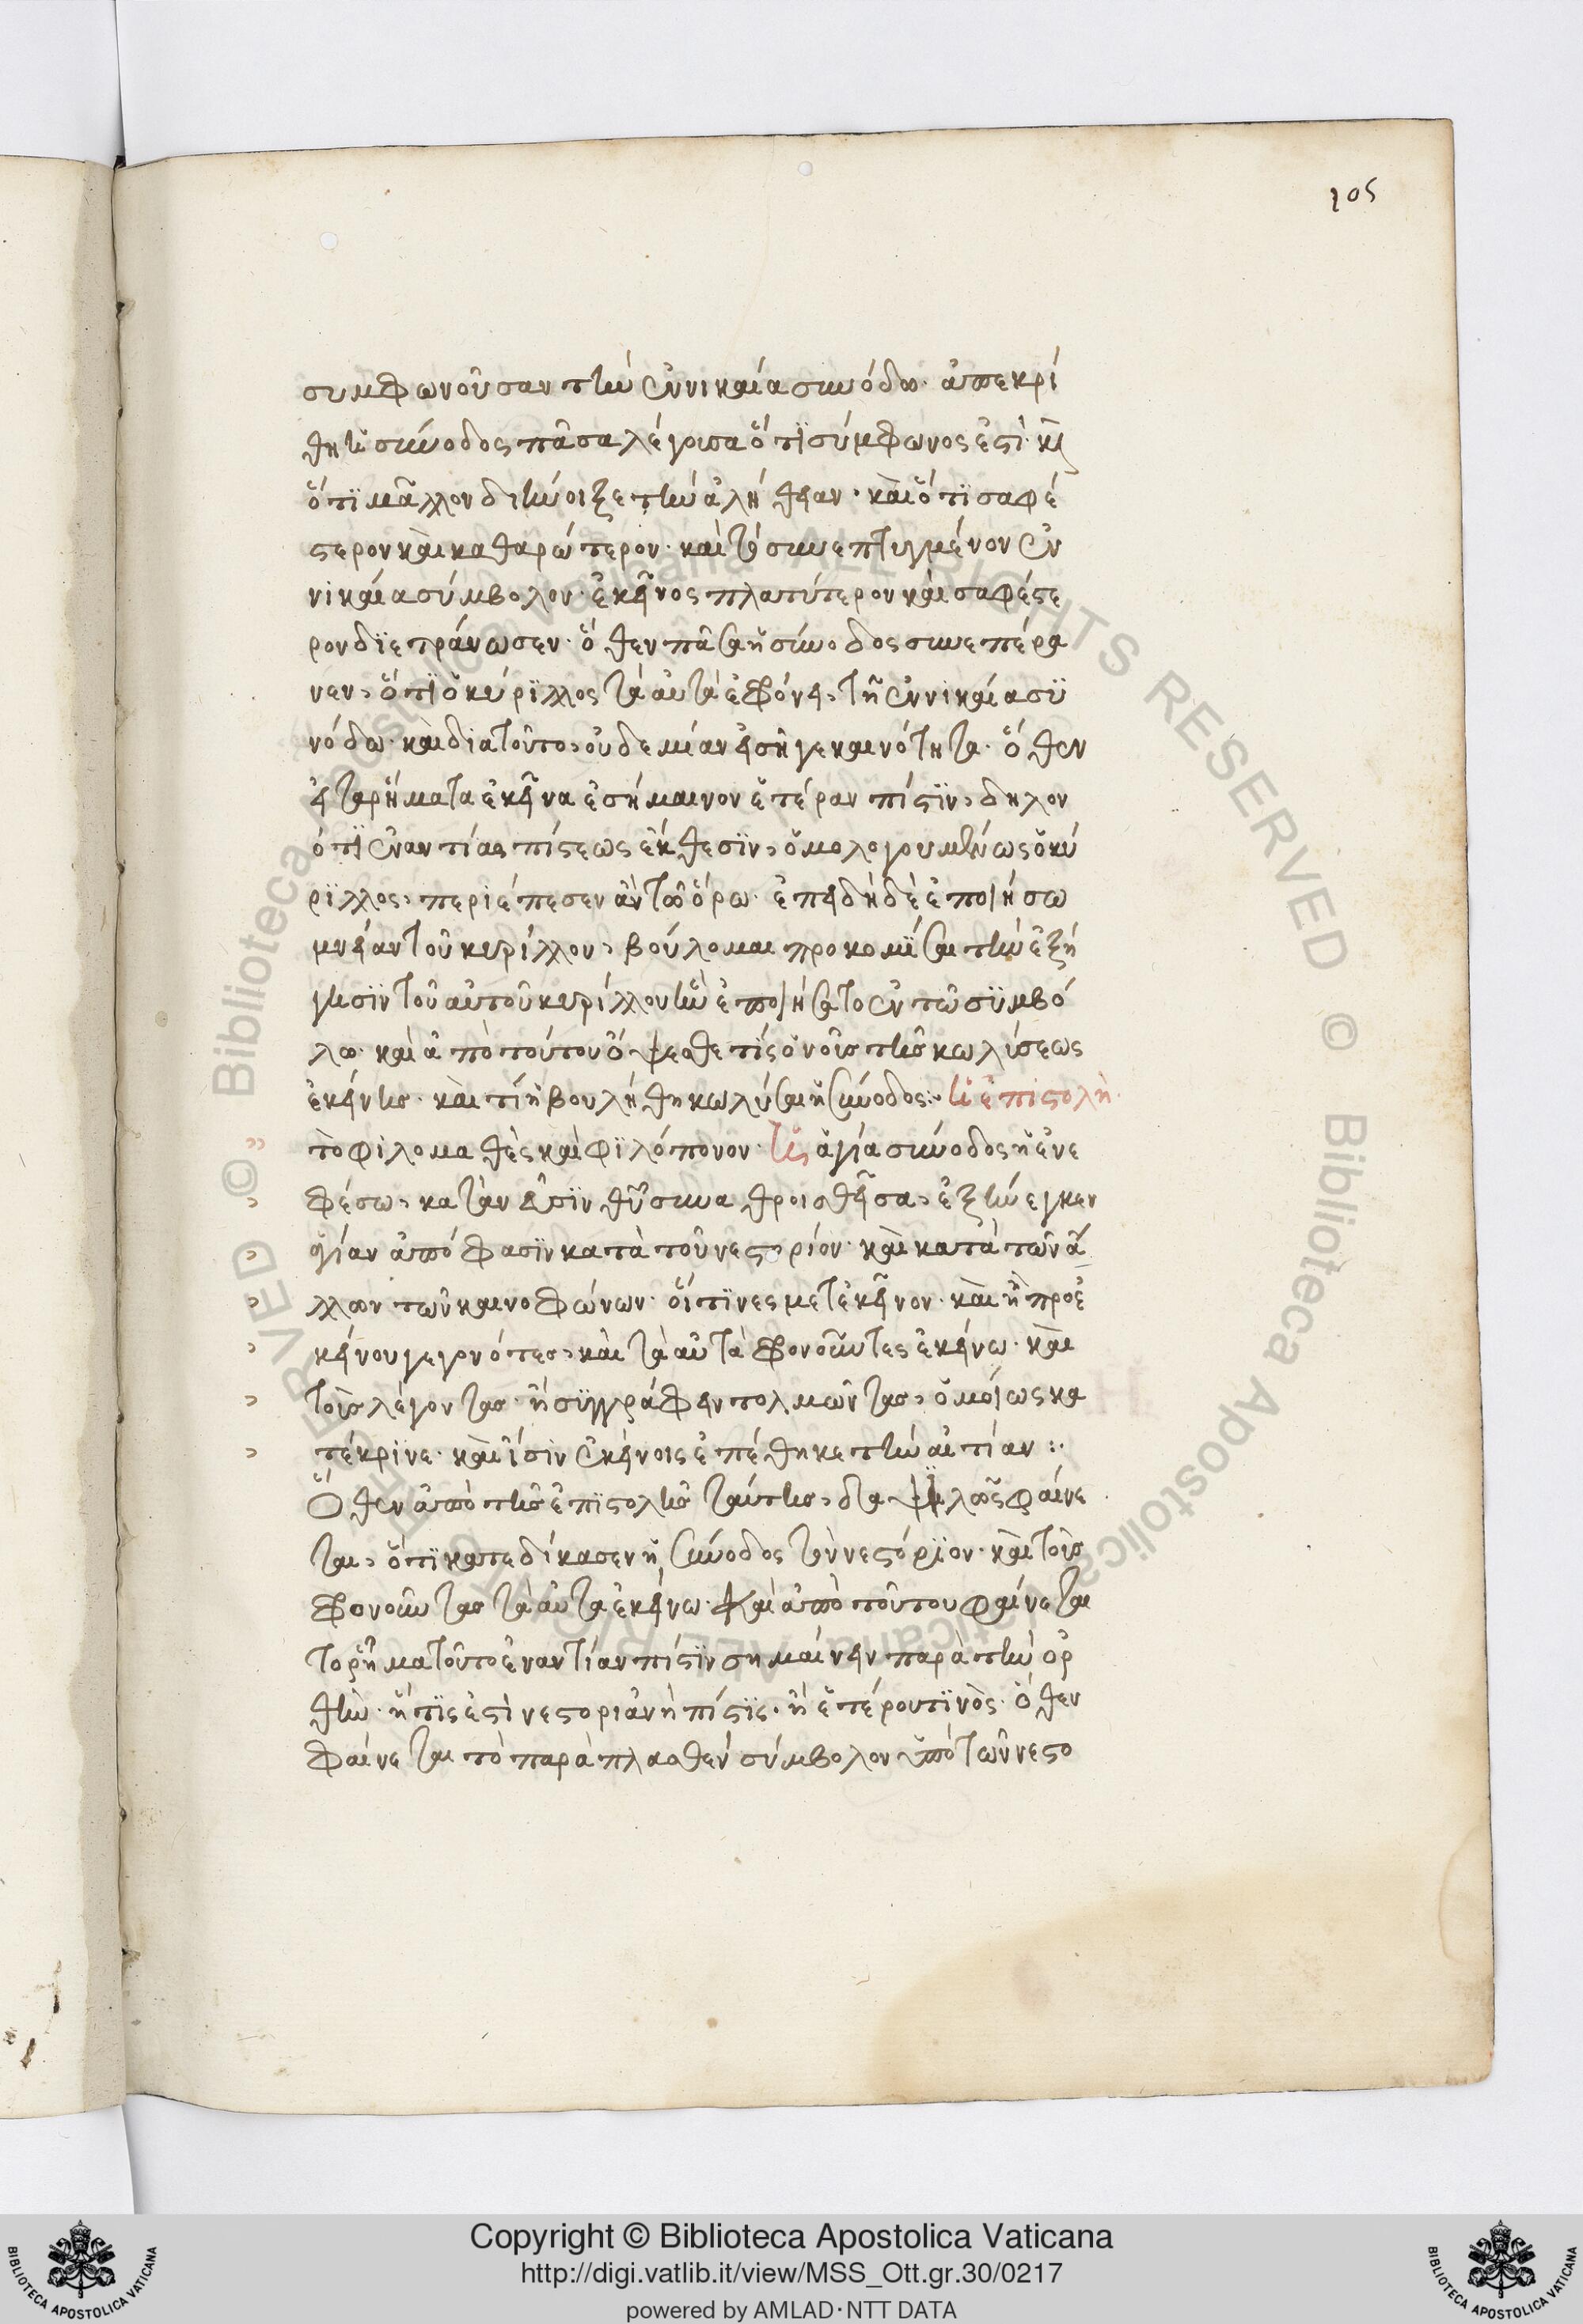 105
συμφωνοῦσαν τὴν ἐν νικαία συνόδω· ἀπεκρί
θη ἡ σύνοδος πᾶσα λέγουσα ὅτι σύμφωνος ἐστὶ· καὶ
ὅτι μᾶλλον διήνοιξε τὴν ἀλήθειαν· καὶ ὅτι σαφέ
στερον καὶ καθαρώτερον· καὶ τὸ συνεπτιγμένον ἐν
νικαία σύμβολον· ἐκεῖνος πλατύτερον καὶ σαφέστε
ρον διετράνωσεν· ὅθεν πᾶσα ἡ σύνοδος συνεπέρα
νεν, ὅτι ὁ κύριλλος τὰ αὐτὰ ἐφόνει, τῆ ἐν νικαία συ
νόδω· καὶ διατοῦτο, οὐδεμίαν εἰσῆγε καινότητα· ὅθεν
εἰ τὰ ῥήματα ἐκεῖνα ἐσήμαινον ἑτέραν πίστιν, δηλον
ότι ἐναντίας πίστεως ἔκθεσιν, ὁμολογουμένως ὁ κύ
ριλλος, περιέπεσεν ἂν τῶ ὅρω· ἐπειδὴ δὲ ἐποιήσω
μνείαν τοῦ κυρίλλου, βούλομαι προκομίσαι τὴν ἐξή
γησιν τοῦ αὐτοῦ κυρίλλου ἣν ἐποιήσατο ἐν τῶ συμβό
λω· καὶ ἀπὸ τούτου ὄψεσθε τίς ὁ νοῦς τῆς κωλύσεως
ἐκείνης· καὶ τί ἠβουλήθη κωλύσαι ἡ σύνοδος:· ἡ ἐπιστολὴ·
τὸ φιλομαθὲς καὶ φιλόπονον· ἡ ἁγία σύνοδος ἡ ἐν ἐ
φέσω, κατὰ νεῦσιν θεοῦ συναθροισθεῖσα, ἐξήνεγκεν
ὁσίαν ἀπόφασιν κατὰ τοῦ νεστορίου· καὶ κατὰ τῶν ἄ
λλων τῶν καινοφώνων· οἵτινες μετ ἐκεῖνον· καὶ ἢ πρὸ ἐ
κείνου γεγονότες, καὶ τὰ αὐτὰ φονοῦντες ἐκείνω· καὶ
τοὺς λέγοντας· ἢ συγγράφειν τολμῶντας, ὁμοίως κα
τέκρινε· καὶ ἴσην ἐκείνοις ἐπέθηκε τὴν αἰτίαν:·
Ὅθεν ἀπὸ τῆς ἐπιστολῆς ταύτης, δια φαίνε
ται, ὅτι κατεδίκασεν ἡ σύνοδος τὸν νεστόριον· καὶ τοὺς
φονοῦντας τὰ αὐτὰ ἐκείνω· καὶ ἀπὸ τούτου φαίνεται
τὸ ῥῆμα τοῦτο ἐναντίαν πίστιν σημαίνειν παρὰ τὴν ὀρ
θὴν· ἥτις ἐστὶ νεστοριανὴ πίστις· ἢ ἑτέρου τινὸς· ὅθεν
φαίνεται τὸ παραπλασθὲν σύμβολον ὑπὸ τῶν νεστο
Copyright © Biblioteca Apostolica Vaticana
http://digi.vatlib.it/view/MSS_Ott.gr.30/0217
powered by AMLAD·NTT DATA